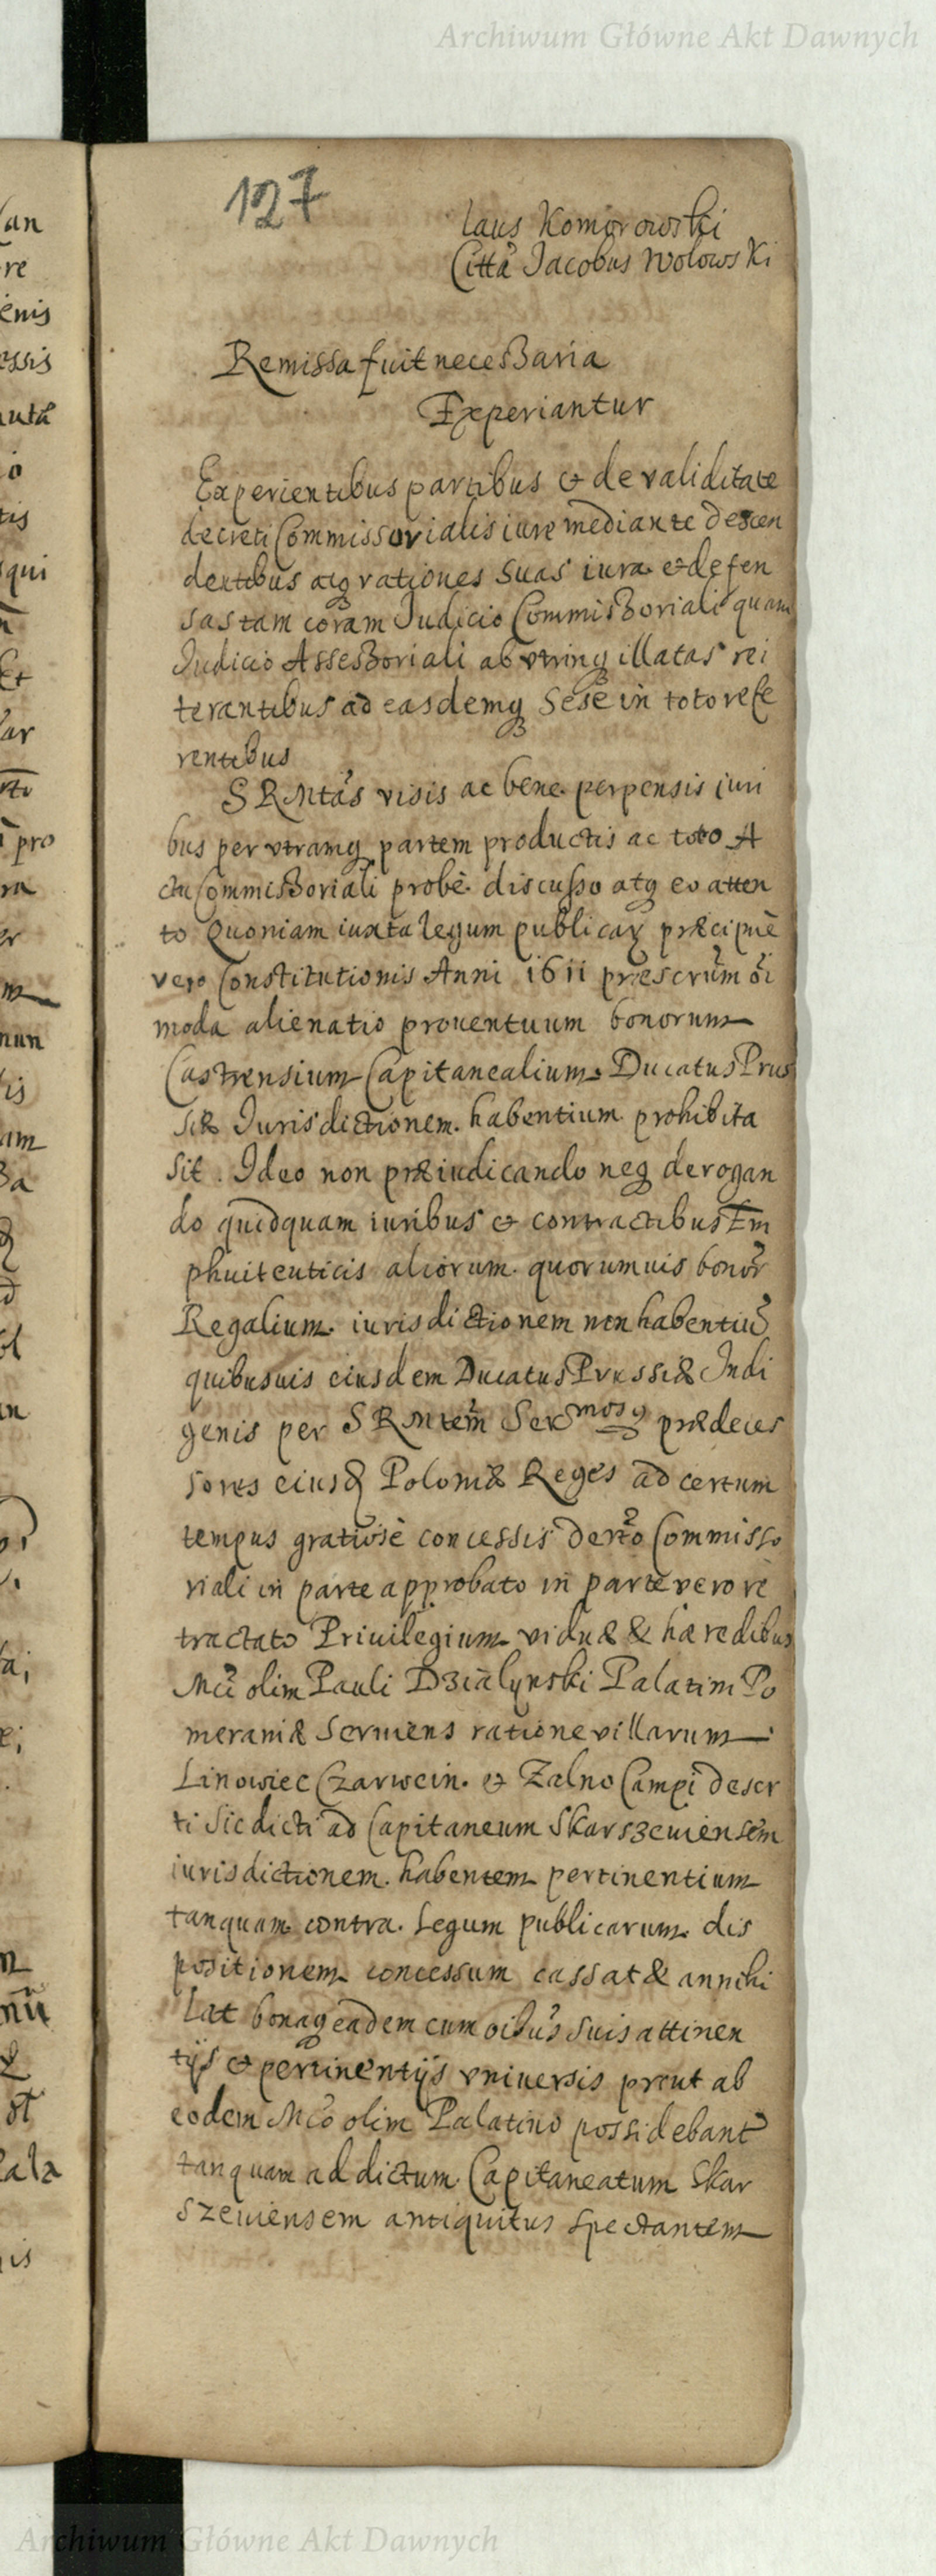 Archiwum Główne Akt Dawnych
127
laus Komorowski
Citta Jacobus Wolowski
Remissa fuit necessaria
Experiantur
Experientibus partibus & de validitate
decreti Commissorialis iure mediante descen
dentibus atq rationes suas iura et defen
sas tam coram Judicio Commissoriali quam
Judicio Assessoriali ab vtrinq illatas rei
terantibus ad easdemq Sese in toto refe
rentibus
S R Mtas visis ac bene perpensis iuri
bus per vtramq partem productis ac toto A
ctu Commissoriali probè discusso atq eo atten
to Quoniam iuxta legum publicar præcipuè
vero Constitutionis Anni 1611 præscrũm oĩ
moda alienatio prouentuum bonorum
Castrensium Capitanealium Ducatus Prus
siæ Jurisdictionem habentium prohibita
sit. Ideo non præiudicando neq derogan
do quidquam iuribus & contractibus Em
phuiteuticis aliorum quorumuis bonor
Regalium iurisdictionem non habentiũ
quibusuis eiusdem Ducatus Prussiæ Indi
genis per S R Mtem Ser mos q prædeces
sores eiusq Poloniæ Reges ad certum
tempus gratiosè concessis derto Commisso
riali in parte approbato in parte vero re
tractato Priuilegium viduæ & hæredibus
Mci olim Pauli Dzialynski Palatini Po
meraniæ seruiens ratione villarum
Linowiec Czarwcin & Zalno Campi deser
ti sic dicti ad Capitaneum Skarszeuiensem
iurisdictionem habentem pertinentium
tanquam contra Legum publicarum dis
positionem concessum cassat & annihi
lat bonaq eadem cum oibus suis attinen
tijs & pertinentijs vniuersis prout ab
eodem Mco olim Palatino possidebant
tanquam ad dictum Capitaneatum Skar
szeuiensem antiquitus spectantem
Archiwum Główne Akt Dawnych